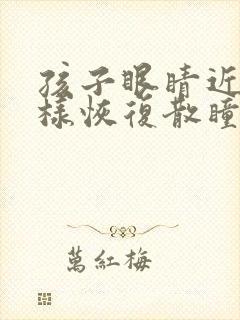 孩子眼睛近
樣恢復散瞳
萬紅梅